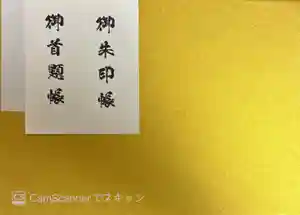 御朱印帳
御首題帳
CamScannerでスキャン